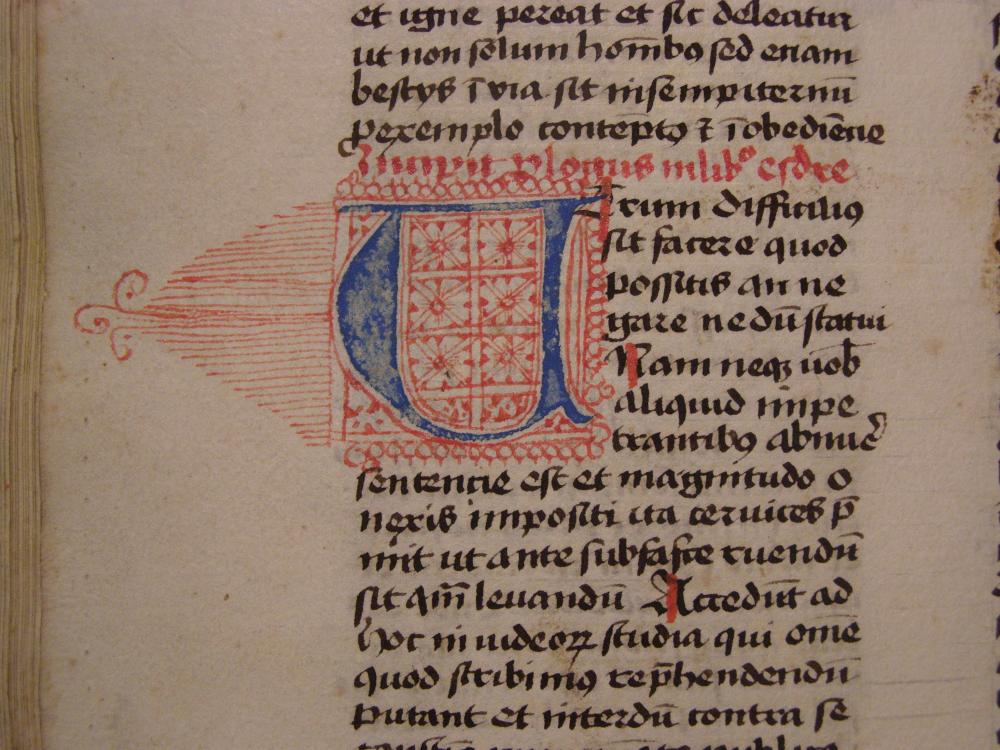 et igne pereat et sic deleatur
ut non solum homībꝯ sed etiam
bestijs ī via sit in sempiternū
ꝑ exemplo contēptꝯ ⁊ īobediēcie
Incipit ꝓlogus in libꝛ esdre
Utrum difficiliꝯ
sit facere quod
possitis an ne
gare nedū statui
Nam neqꝫ uob̄
aliquid impe
trantibꝯ abnuē
sentencie est et magnitudo o
neris impositi ita ceruices p̄
mit ut ante sub fasce ruendū
sit qm̄ leuandū Accedūt ad
hoc inuideoꝝ studia qui om̄e
quod scribimꝯ rep̄hendendū
putant et interdū contra se